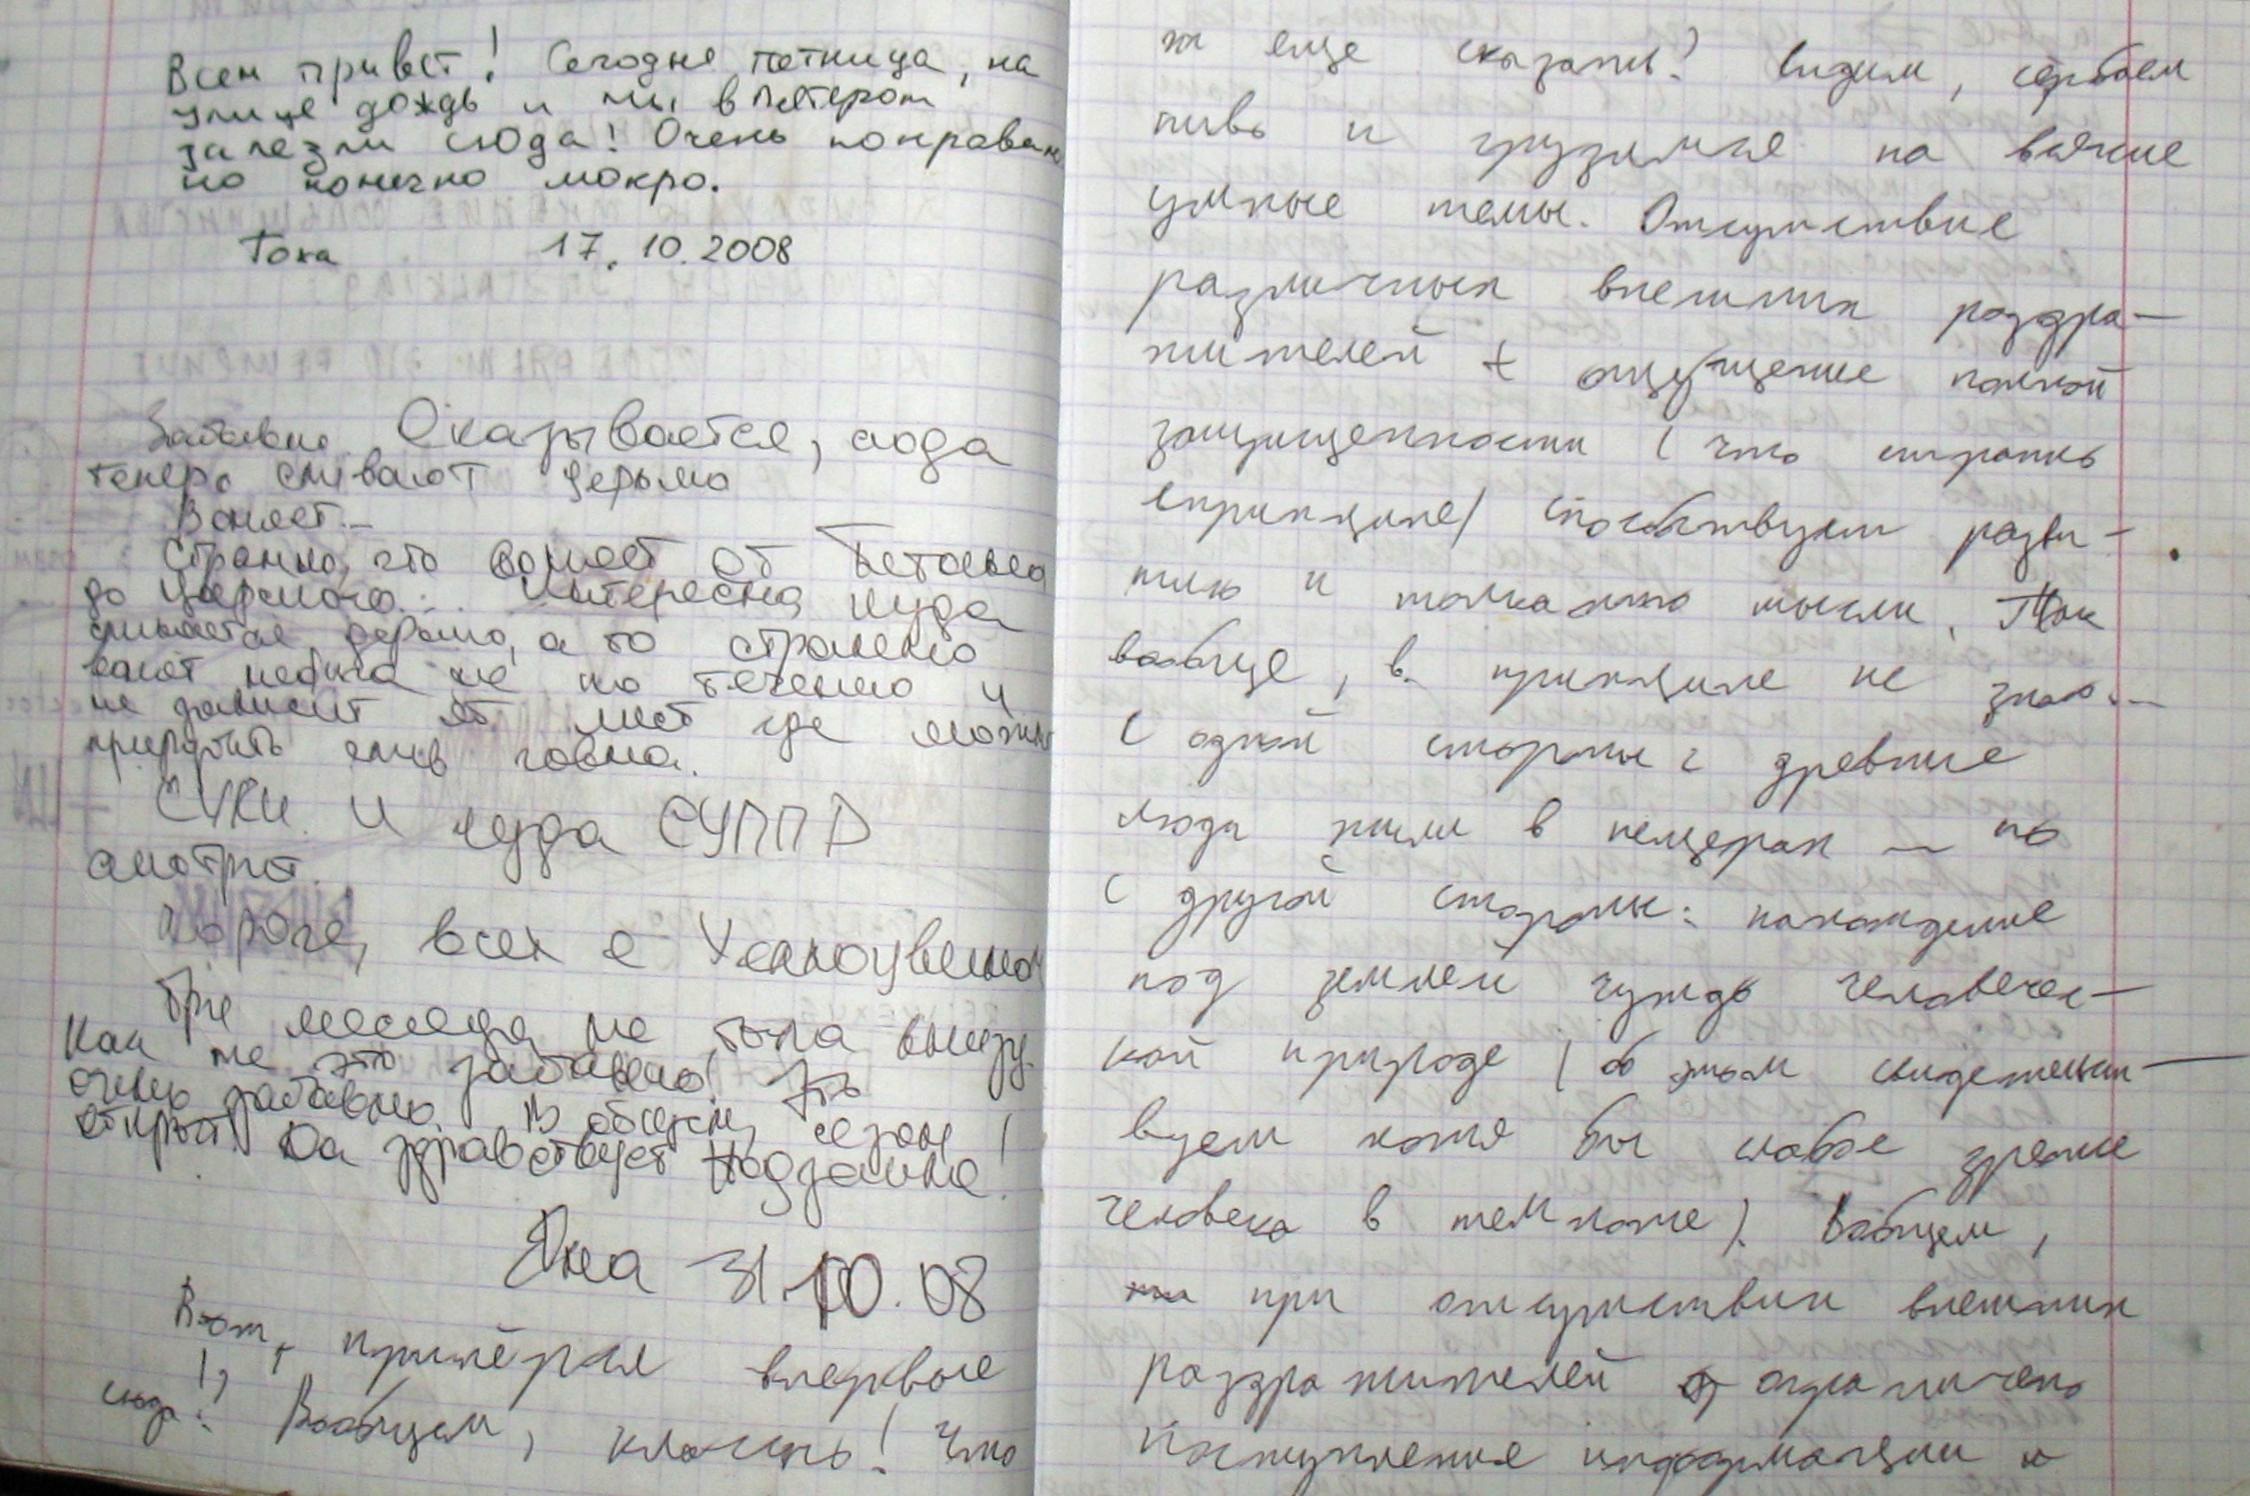 Всем привет! Сегодне пятница, на
улице дождь и мы в Питером
залезли сюда! Очень понравил
но конечно мокро.
Тоха 17.10.2008
Забавно. Оказывается, сюда
теперь сливают дерьмо
Воняет...
Странно, что воняет от
до Интересно куда
сливается дерьмо, а то странено
не по течению и
не зависит от мест где можно
слив говна.
СУКИ. И куда СУППР
смотрит.
Короче, всех с Хеллоувеном
Три месяца не была внизу.
Как же это забавно! Это
очень забавно. В общем, сезон
открыт. Да здравствует Подземка!
Яна 31.10.08
Вот, припёрся впервые
сюда! Вообщем, классно! Что
ж еще сказать? Сидим, сёрбаем
пиво и грузимся на всякие
умные темы. Отсутствие
различных внешних раздра-
жителей + ощущение полной
защищенности (что странно
впринципе) способствует разви-
тию и толканию мысли. Так
вообще, в принципе не знаю...
С одной стороны: древние
люди жили в пещерах — но
с другой стороны: нахождение
под землей чуждо человечес-
кой природе (об этом свидетельст-
вует хотя бы слабое зрение
человека в темноте). Вобщем,
при отсутствии внешних
раздражителей ограничено
поступление информации и